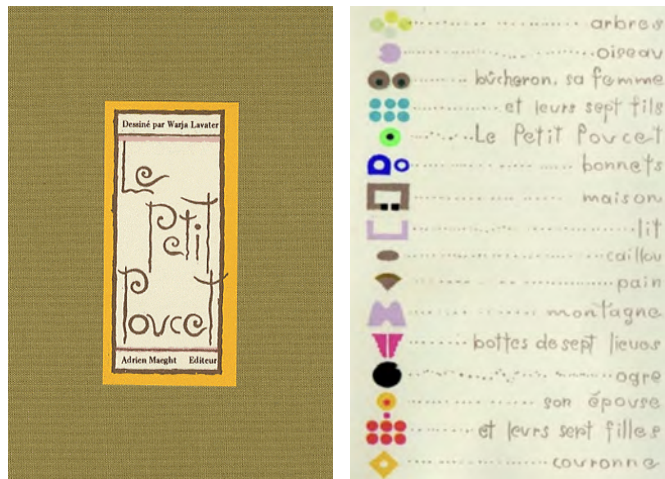 Dessiné par Warja Lavater
Le
Petit
Poucet
Adrien Maeght Editeur
arbres
oiseau
bûcheron, sa femme
et leurs sept fils
Le Petit Poucet
bonnets
maison
lit
caillou
pain
montagne
bottes de sept lieues
ogre
son épouse
et leurs sept filles
couronne